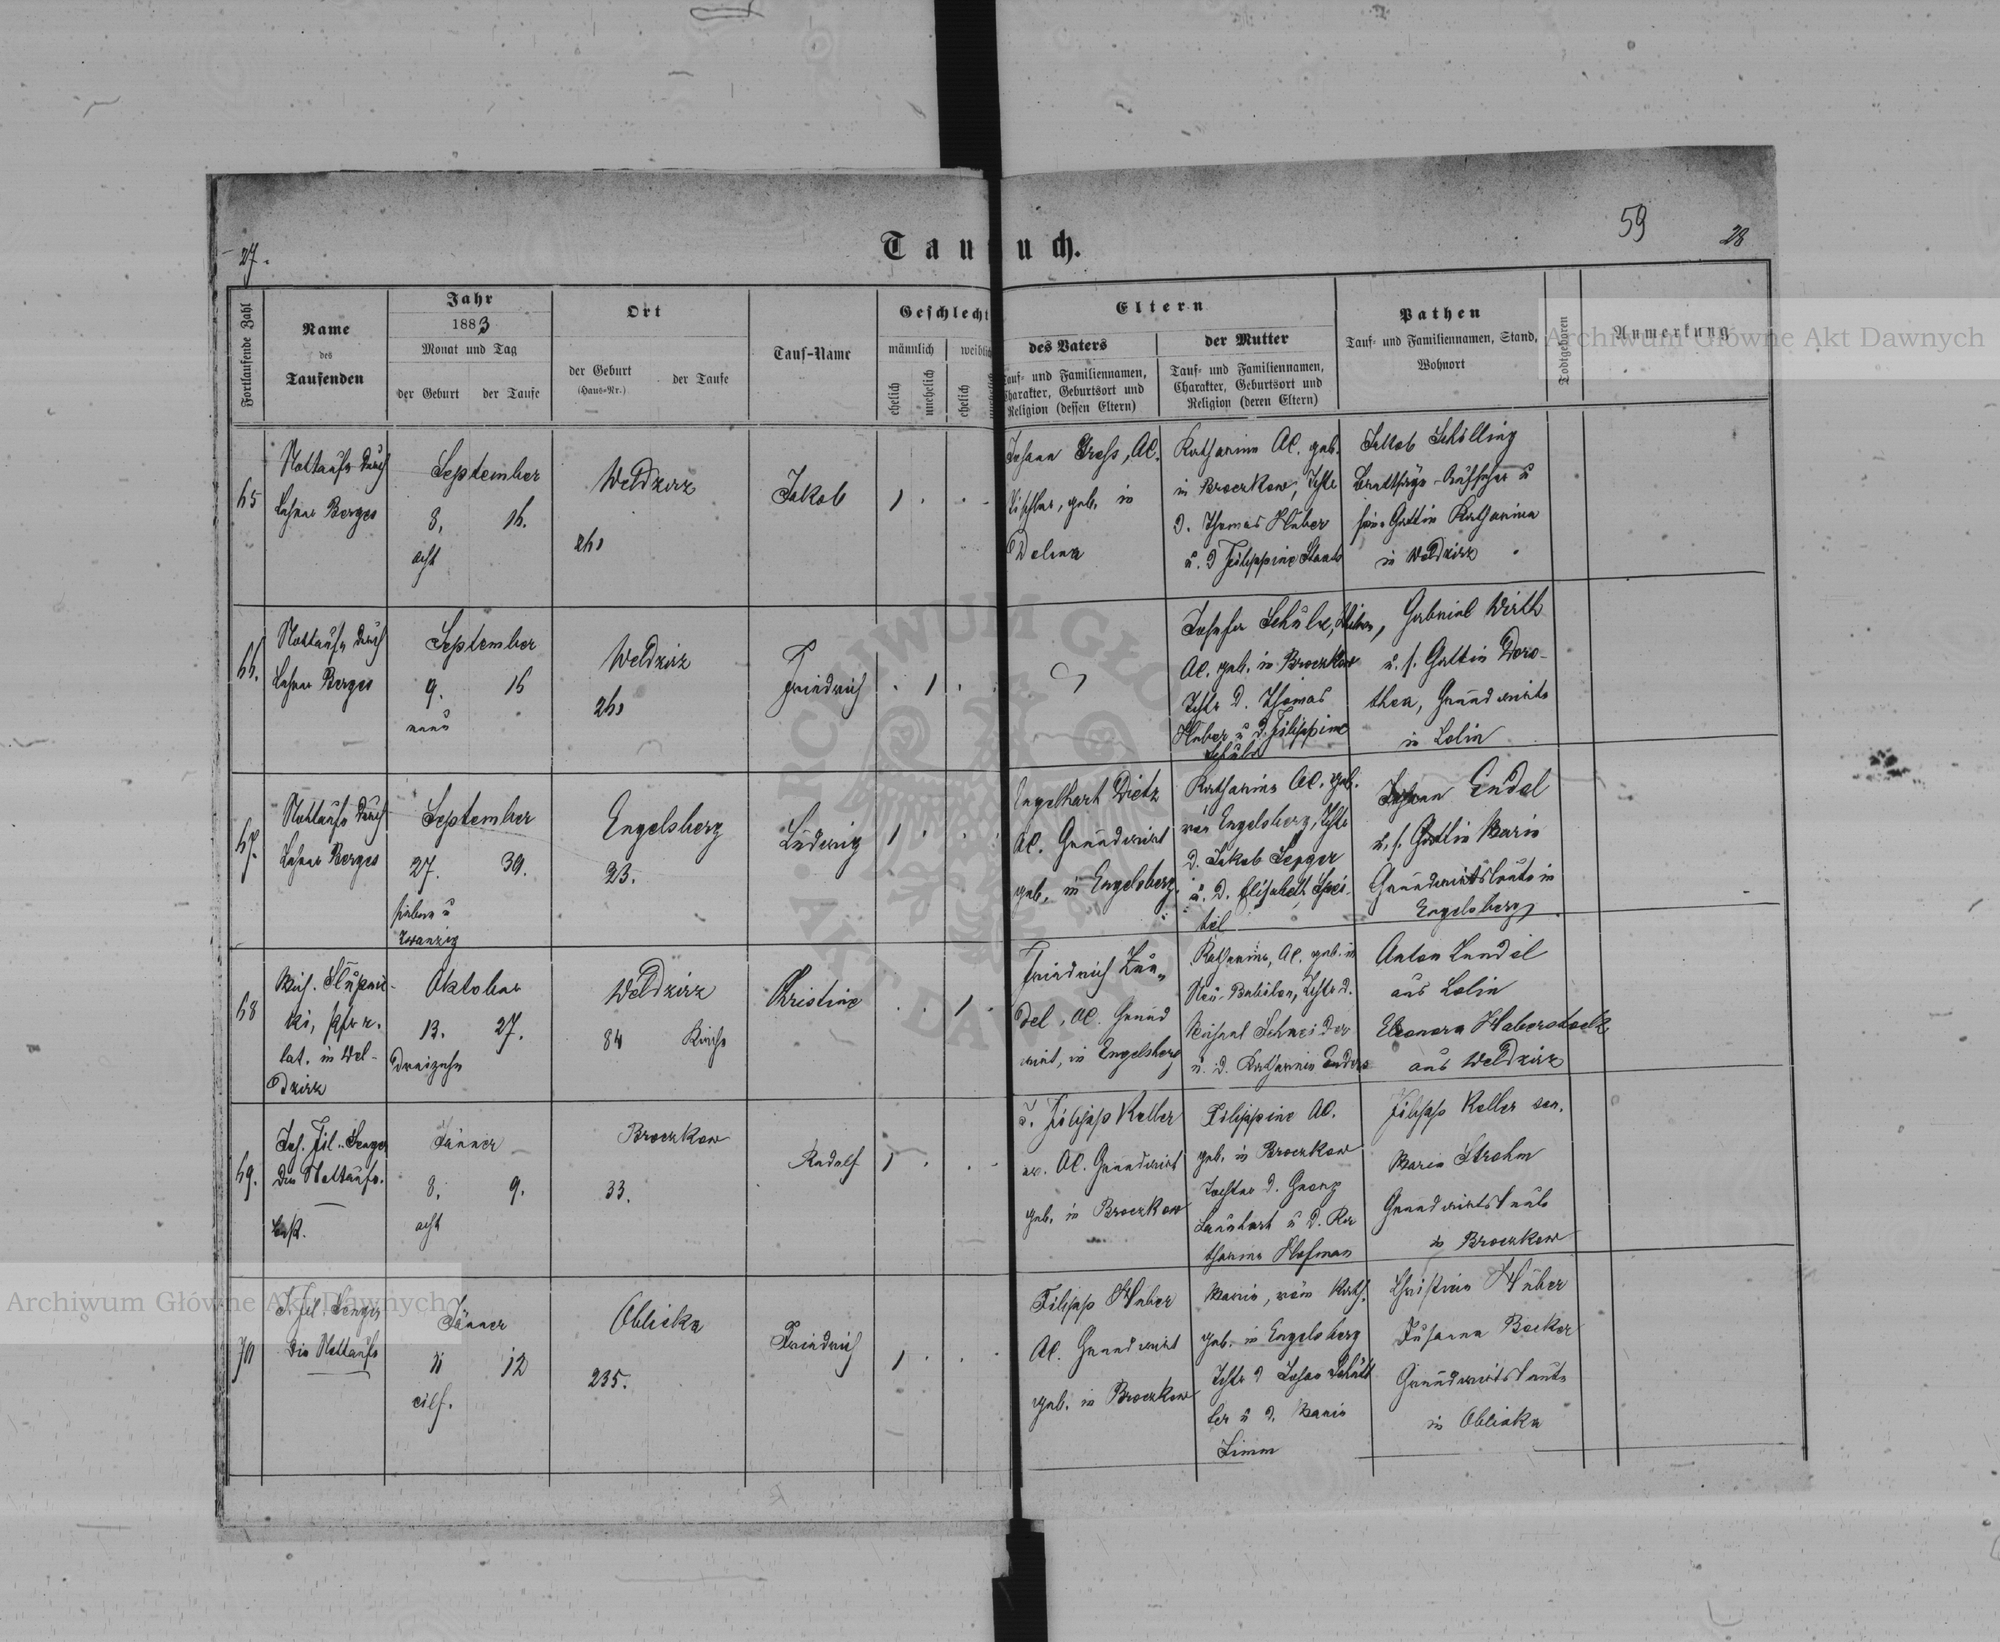 27.
59
28
Tau uch.
Fortlaufende Zahl
Name
des
Taufenden
Jahr
1883
Monat und Tag
der Geburt
der Taufe
Ort
der Geburt
(Haus-Nr.)
der Taufe
Tauf-Name
Geschlecht
männlich
weiblich
ehelich
unehelich
ehelich
unehelich
Eltern
des Vaters
Tauf- und Familiennamen,
Charakter, Geburtsort und
Religion (dessen Eltern)
der Mutter
Tauf- und Familiennamen,
Charakter, Geburtsort und
Religion (deren Eltern)
Pathen
Tauf- und Familiennamen, Stand,
Wohnort
Todtgeboren
Anmerkung
65
Nottaufe durch
Lehrer Berges
September
8. 16.
acht
Weldzirz
Jakob
Johann Press, AC.
Tischler, geb. in
Dolina
Katharina AC. geb.
in Broczkow, Tchtr
d. Thomas Huber
u. d. Filippine Staab
Jakob Schilling
Aufseher u
seine Gattin Katharina
in Weldzirz
66.
Nottaufe durch
Lehrer Berges
September
9. 16
neun
Weldzirz
Friedrich
Josefa Schülr,
AC. geb. in Broczkow
Tchtr d. Thomas
Huber u d. Filippine
Gabriel Wirth
u. s. Gattin Doro-
thea, Grundwirte
in Lolin
67.
Nottaufe durch
Lehrer Berges
September
27. 30.
sieben u
zwanzig
Engelsberg
23.
Ludwig
Engelhart Dietz
AC. Grundwirt
geb. in Engelsberg.
Katharina AC. geb.
von Engelsberg, Tchtr
d. Jakob Senger
u. d. Elisabeth
Johann Endel
u. s. Gattin Maria
Grundwirtsleute in
Engelsberg
68
Mich.
ki, Pfrr r.
lat. in Wel-
dzirz
Oktober
13. 27.
dreizehn
Weldzirz
84 Kirche
Christine
Friedrich Zun-
del, AC. Grund
wirt, in Engelsberg
Katharina, AC. geb. in
Neu-Babilon, Tchtr d.
Michael Schneider
u. d. Katharina Enders
Anton Zundel
aus Lolin
Eleonora Haberstock
aus Weldzirz
69.
Joh. Fil. Senger
die Nottaufe.
Jänner
8. 9.
acht
Broczkow
33.
Rudolf
Filipp Keller
AC. Grundwirt
geb. in Broczkow
Filippine AC.
geb. in Broczkow
Tochter d. Georg
u d. Ka
tharina Hofman
Filipp Keller sen.
Maria Strohm
Grundwirtsleute
in Broczkow
70
J. Fil. Senger
die Nottaufe
Jänner
11 12
eilf.
Obliska
235.
Friedrich
Filipp Huber
AC. Grundwirt
geb. in Broczkow
Maria, röm Kath.
geb. in Engelsberg
Tchtr d
ler u d. Maria
Simm
Christian Huber
Susanna Becker
Grundwirtsleute
in Obliska
Archiwum Główne Akt Dawnych
Archiwum Główne Akt Dawnych
ARCHIWUM GŁÓWNE AKT DAWNYCH